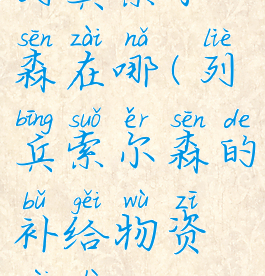 sēn zài nǎ liè
森在哪(列
bīng suǒ ěr sēn de
兵索尔森的
bǔ gěi wù zī
补给物资